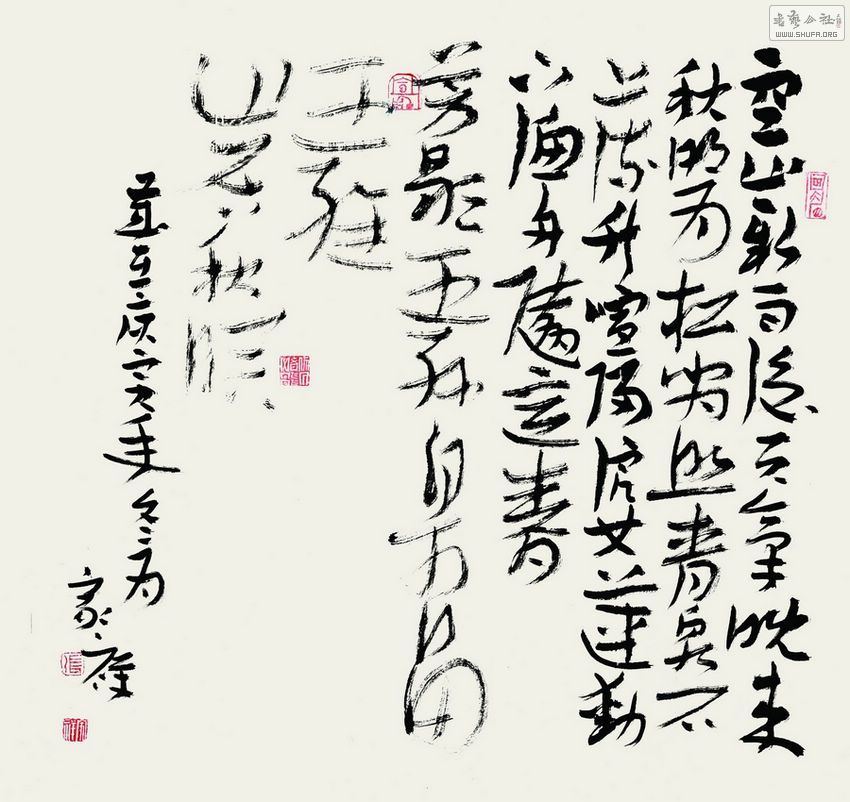 書藝公社
WWW.SHUFA.ORG
空山新雨後天氣晚來
秋明月松間照清泉石
上流竹喧歸浣女蓮動
下漁舟隨意春
芳歇王孫自可留
王維
山居秋暝
庚寅年冬月
家